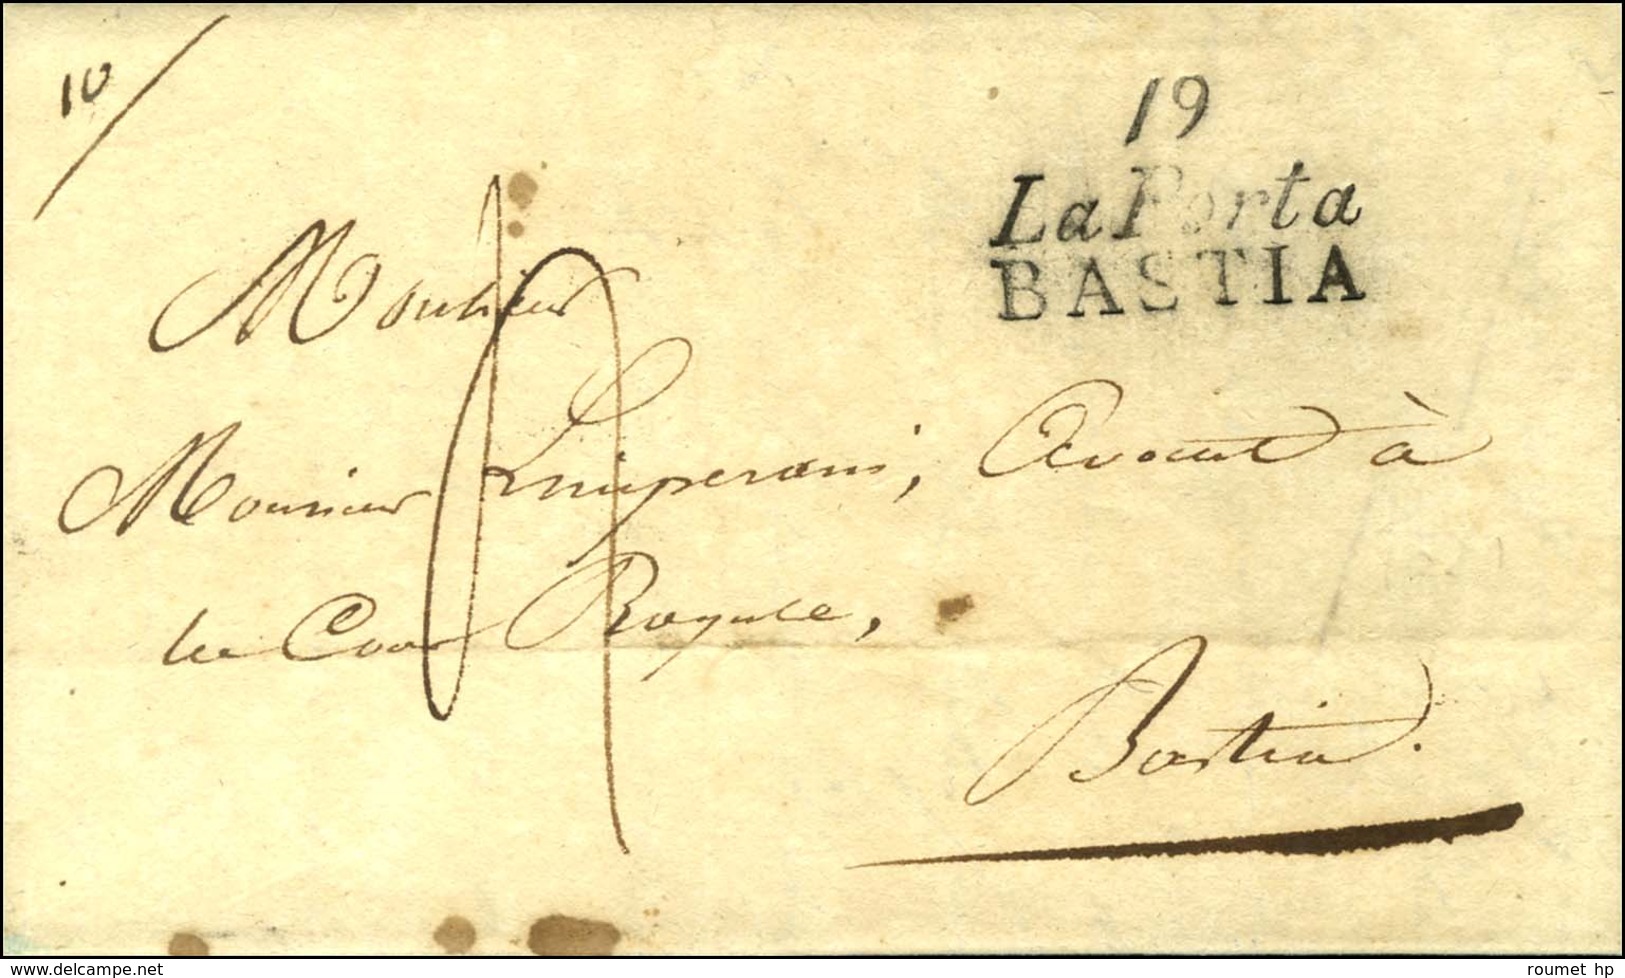 10
19
La Porta
BASTIA
Monsieur
Monsieur Luiperani, Avocat à
la Cour Royale,
Bastia.
www.delcampe.net
roumet hp